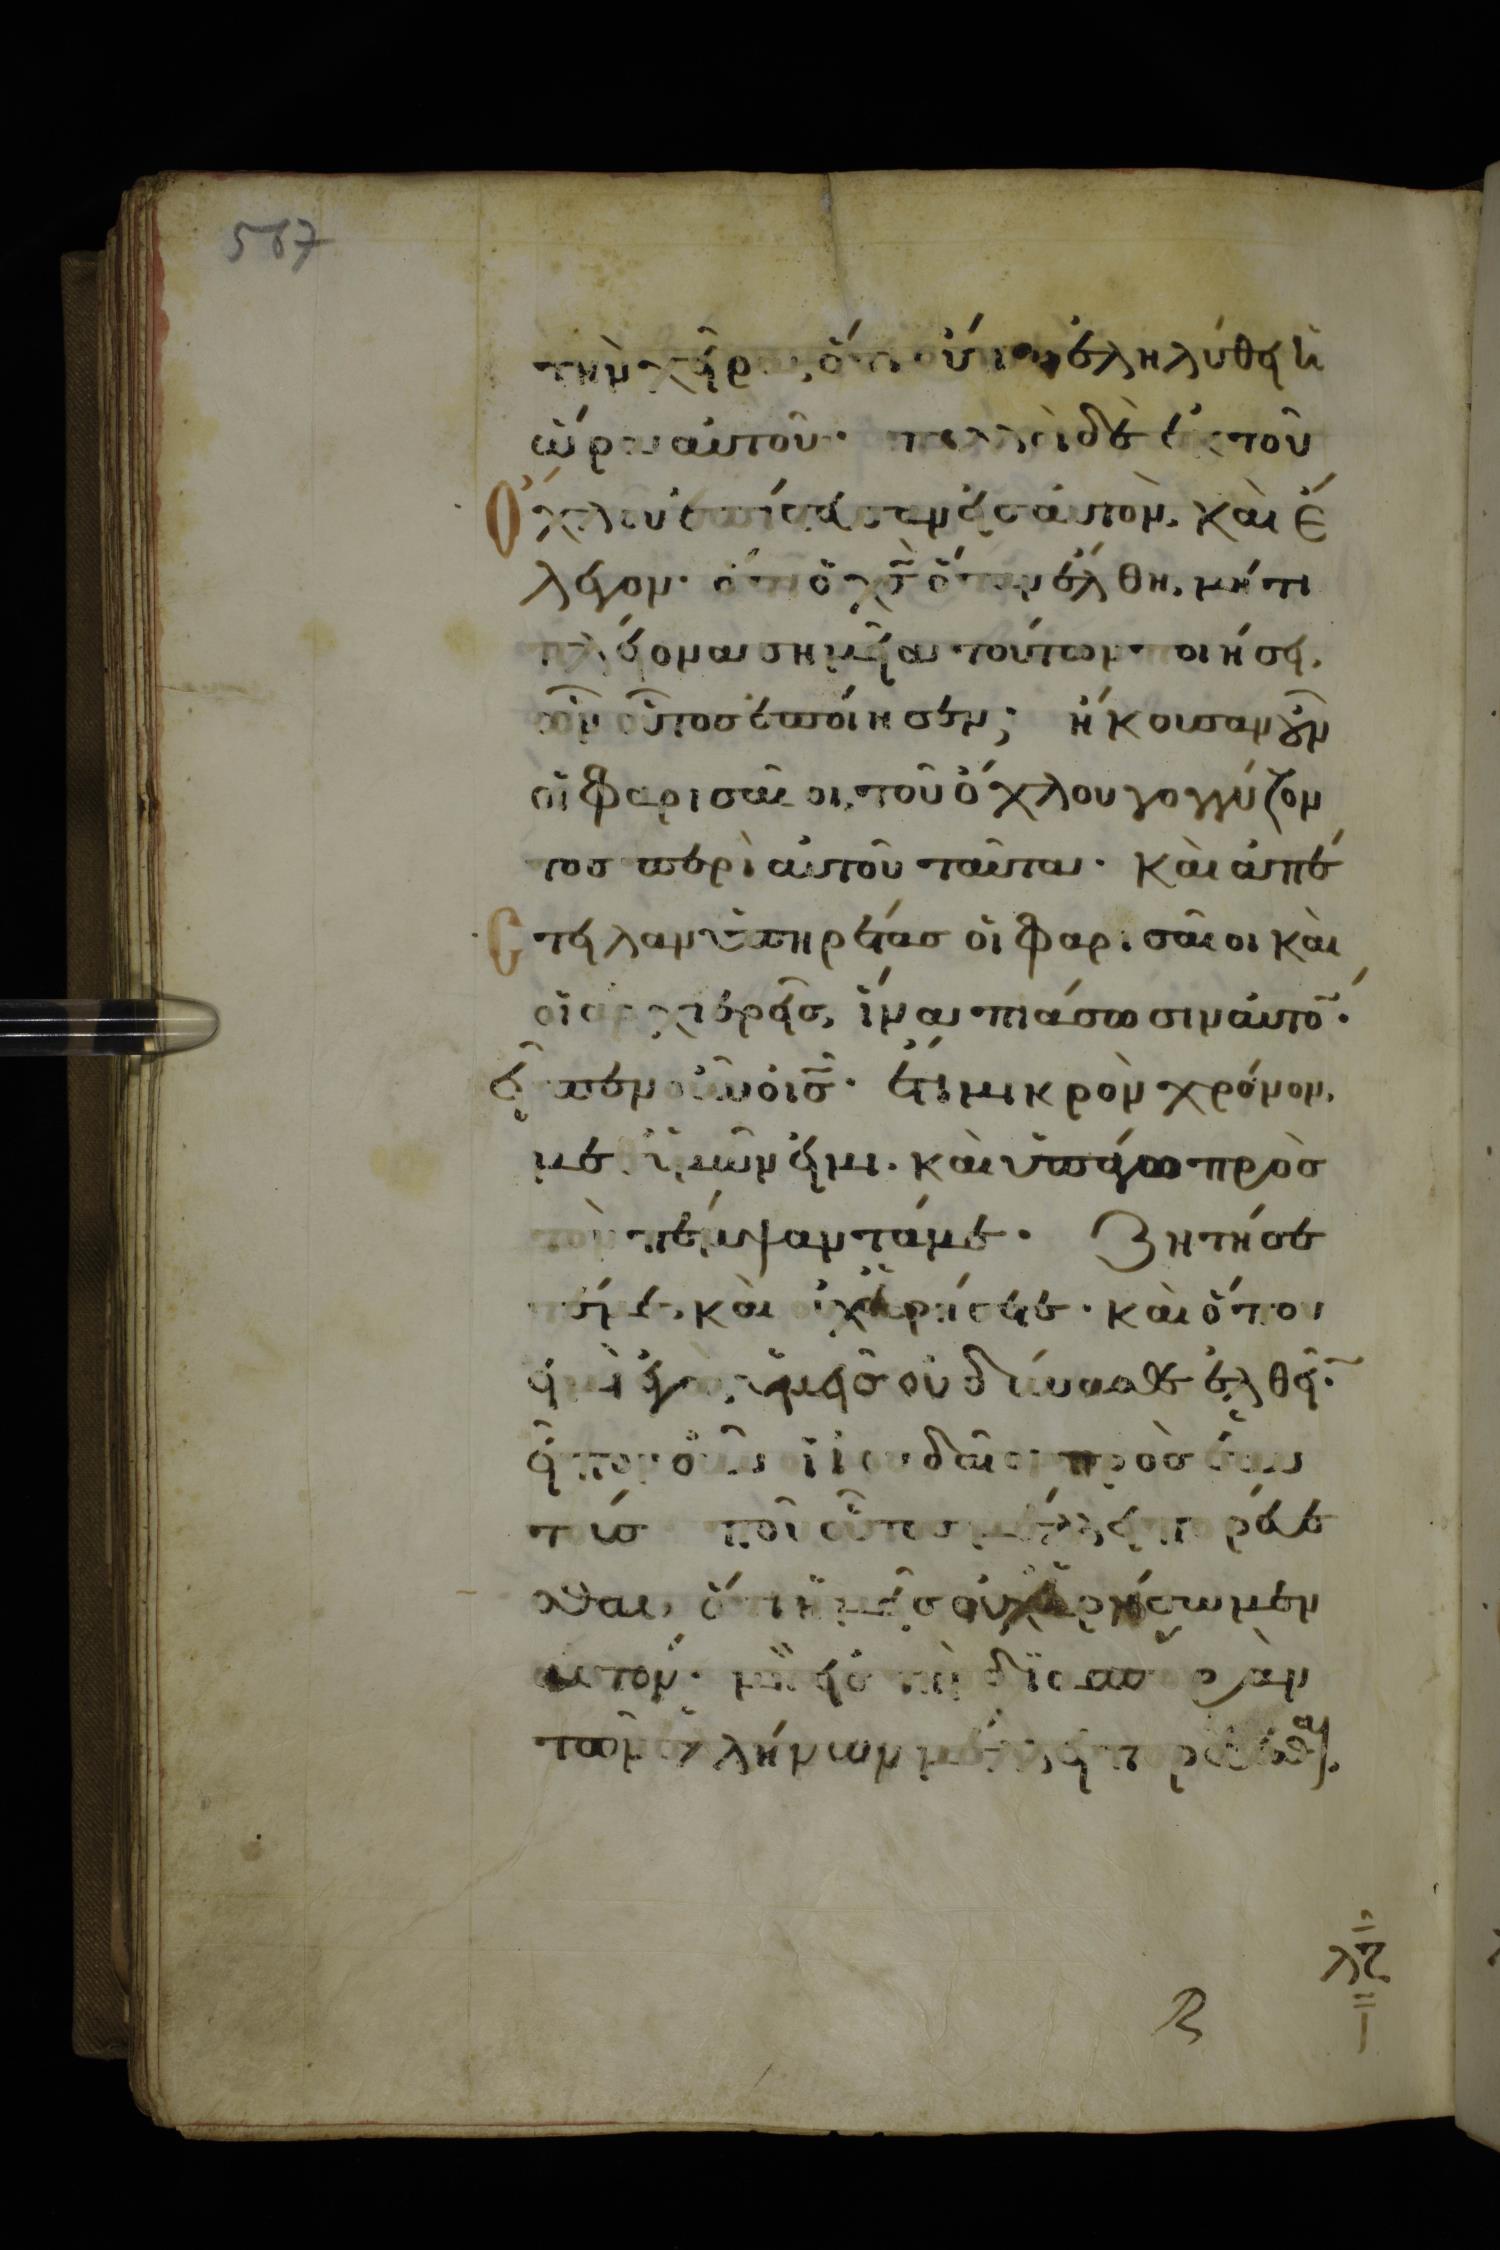 567
τὴν χεῖρα, ὅτι οὔπω ἐληλύθει ἡ
ὥρα αὐτοῦ· πολλοὶ δὲ ἐκ τοῦ
ὄχλου ἐπίστευσαν εἰς αὐτὸν, καὶ ἔ
λεγον· ὅτι ὁ χς̅ ὅταν ἔλθη, μήτι
πλείονα σημεῖα τούτων ποιήσει,
ὧν οὗτος ἐποίησεν; ἤκουσαν οὖν
οἱ φαρισαῖοι, τοῦ ὄχλου γογγύζον
τος περὶ αὐτοῦ ταῦτα· καὶ ἀπέ
στειλαν ὑπηρέτας οἱ φαρισαῖοι καὶ
οἱ ἀρχιερεῖς, ἵνα πιάσωσιν αὐτό̅·
εἶπεν οὖν ὁ ις̅· ἔτι μικρὸν χρόνον,
μεθ' ὑμῶν εἰμι· καὶ ὑπάγω πρὸς
τὸν πέμψαντά με· ζητήσε
τέ με, καὶ οὐχ εὑρήσετε· καὶ ὅπου
εἰμὶ ἐγὼ, ὑμεῖς οὐ δύνασθε ἐλθεῖ̅·
εἶπον οὖν οἱ ἰουδαῖοι πρὸς ἑαυ
τούς ποῦ οὗτος μέλλει πορεύε
σθαι, ὅτι ἡμεῖς οὐχ εὑρήσωμεν
αὐτόν· μὴ εἰς τὴν διασπορὰν
τῶν ἑλλήνων μέλλει πορεύεσθαι.
λζ